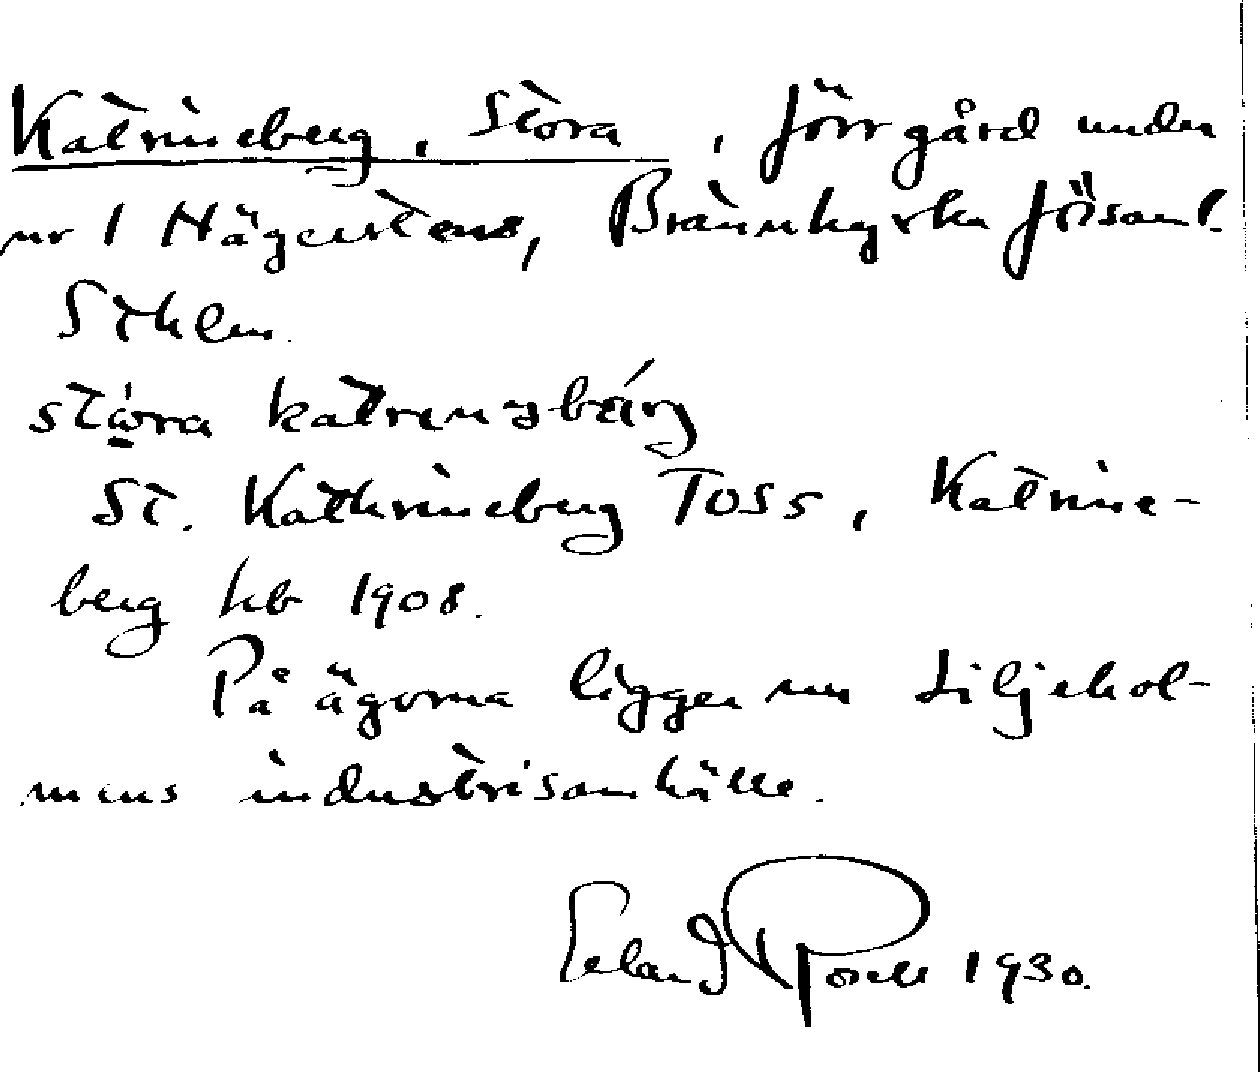 Katrineberg, Stora, förr gård under
nr 1 Hägerstens, Brännkyrka förs aml.
Sthlm.
stóra katrinəbärj
St. Kathrineberg TOSS, Katrine-
berg hb 1908.
På ägorna ligger nu Liljehol-
mens industrisamhälle.
Erland Rosell 1930.